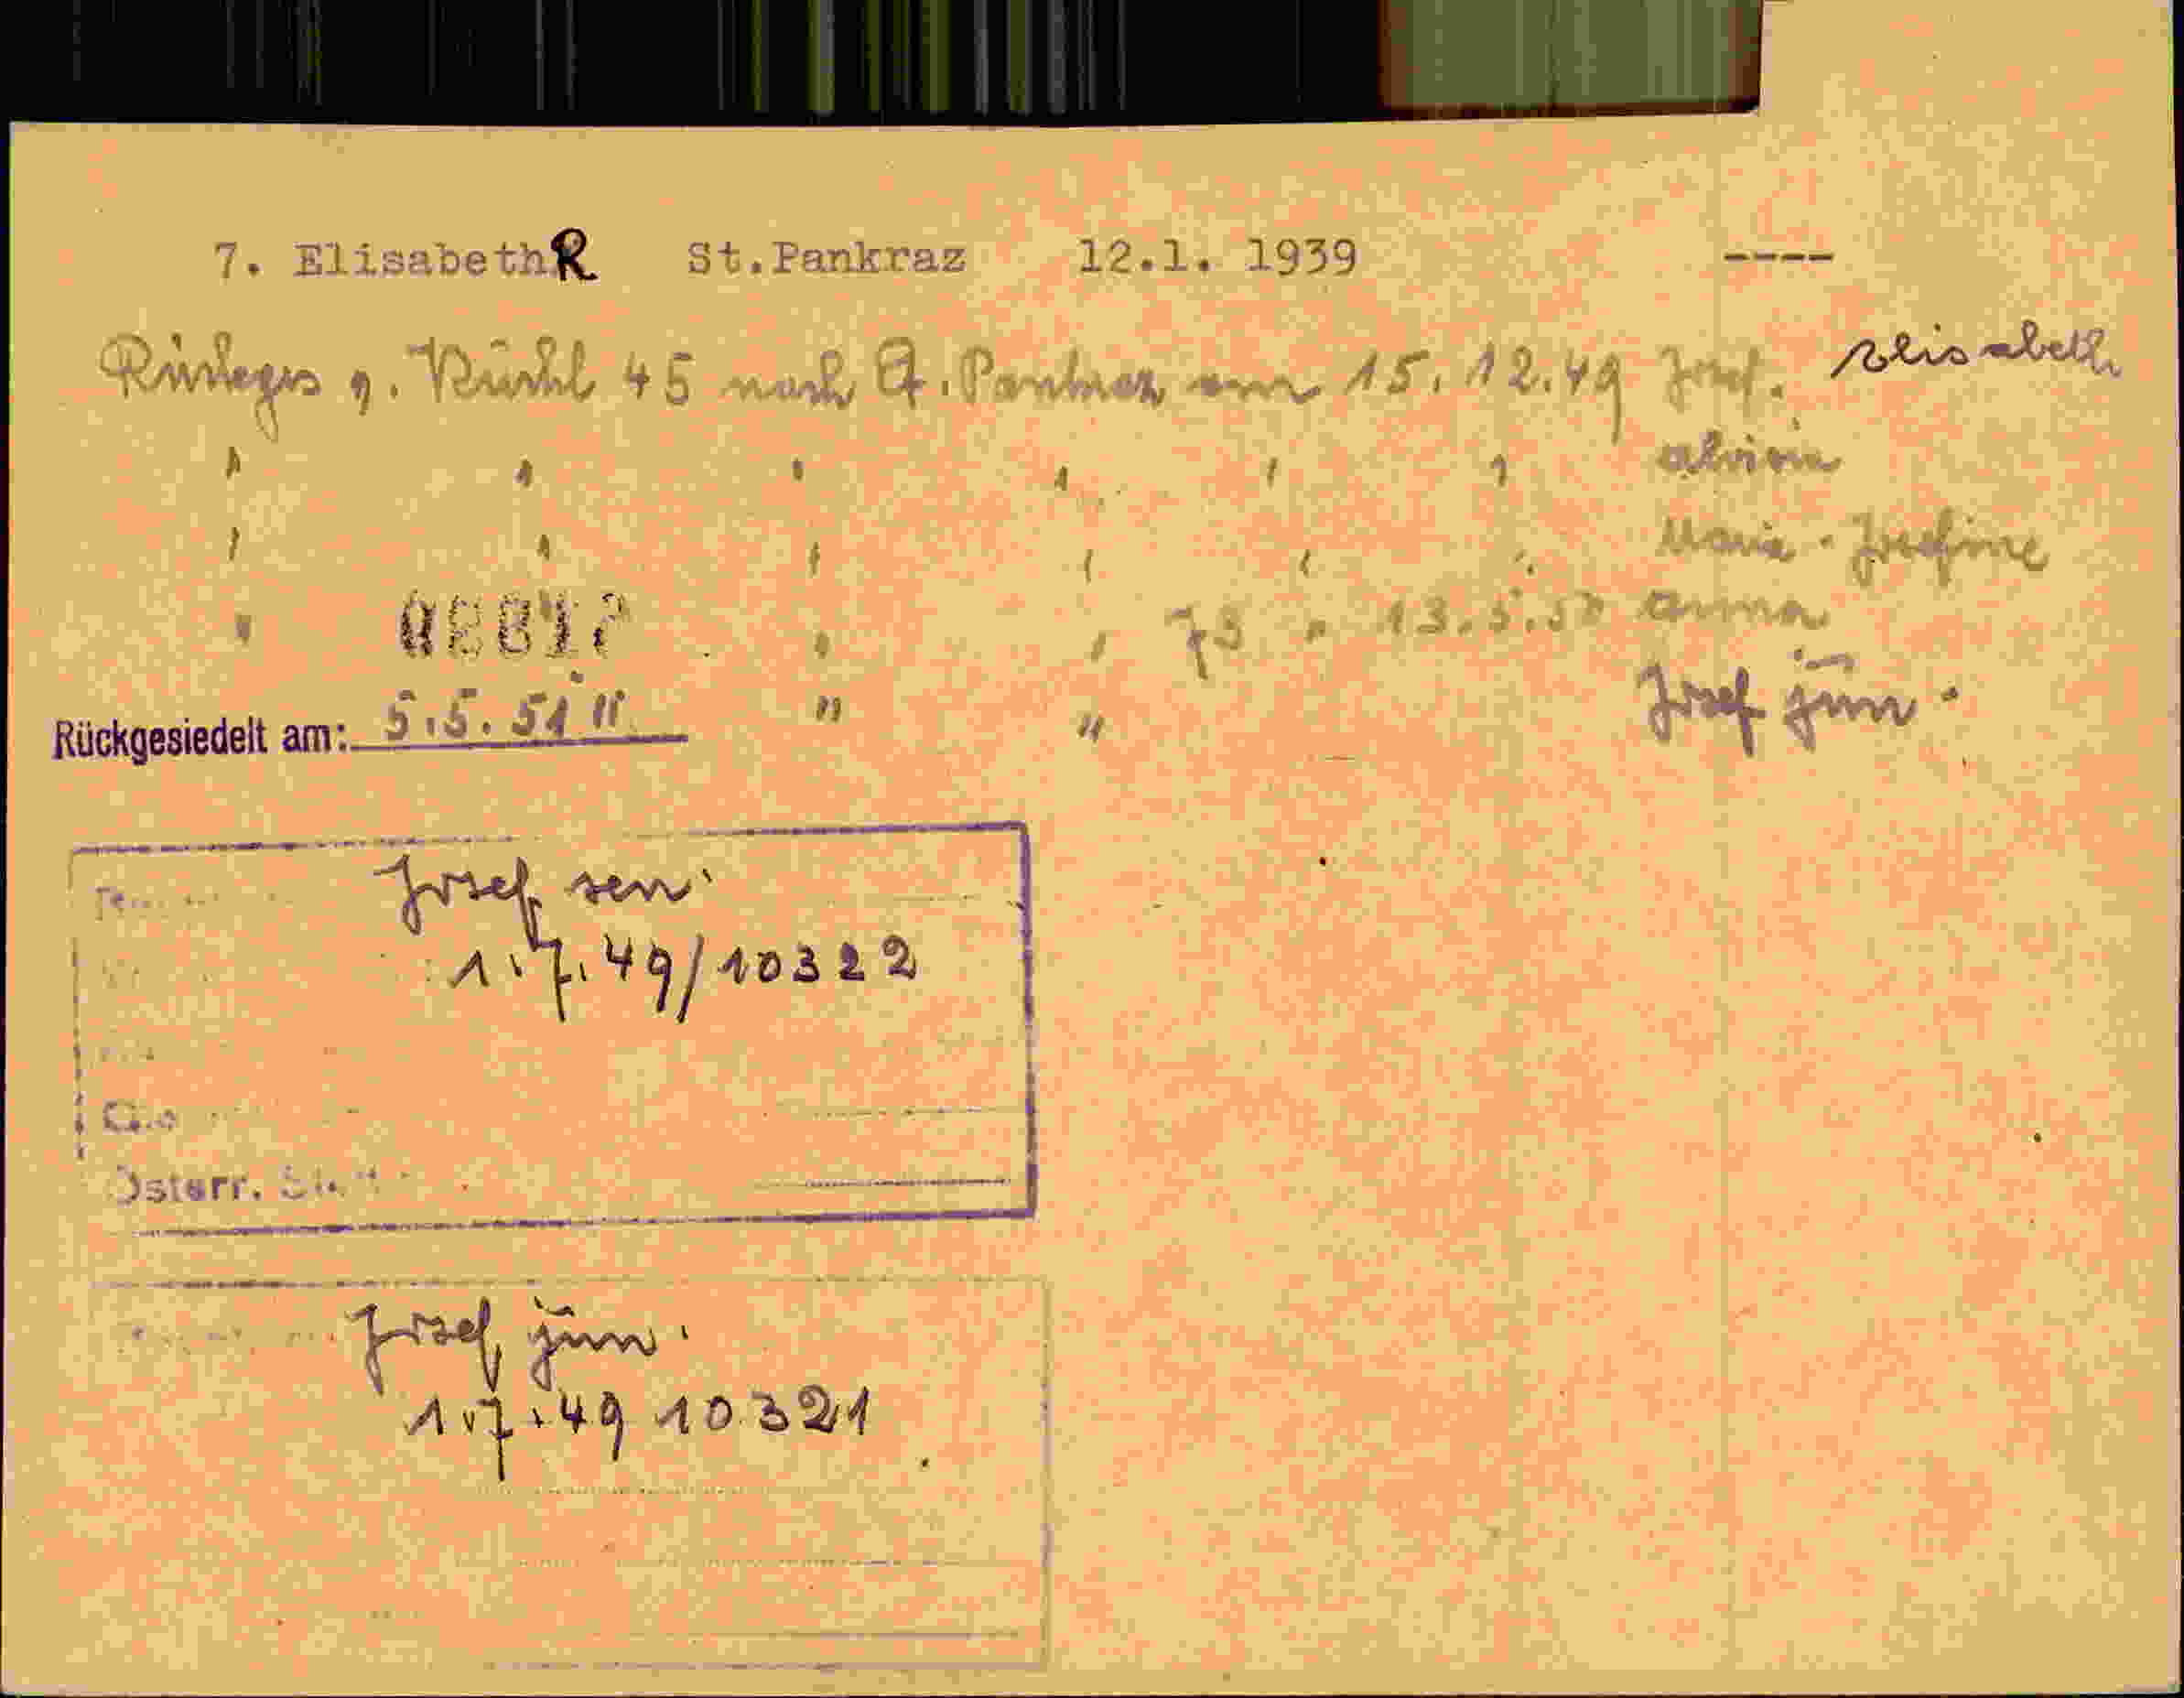 7. Elisabeth R St.Pankraz 12.1. 1939 ----
45 nach St. Pankraz am 15. 12. 49 Josef. Elisabeth
" " " " " "
" " " " " " Maria - Josefine
" " " 73 " 13.5.50 Anna
Rückgesiedelt am: 5.5.51 " " " Josef jun.
Josef sen.
1.7.49/10322
Österr.
Josef jun.
1.7.49 10321